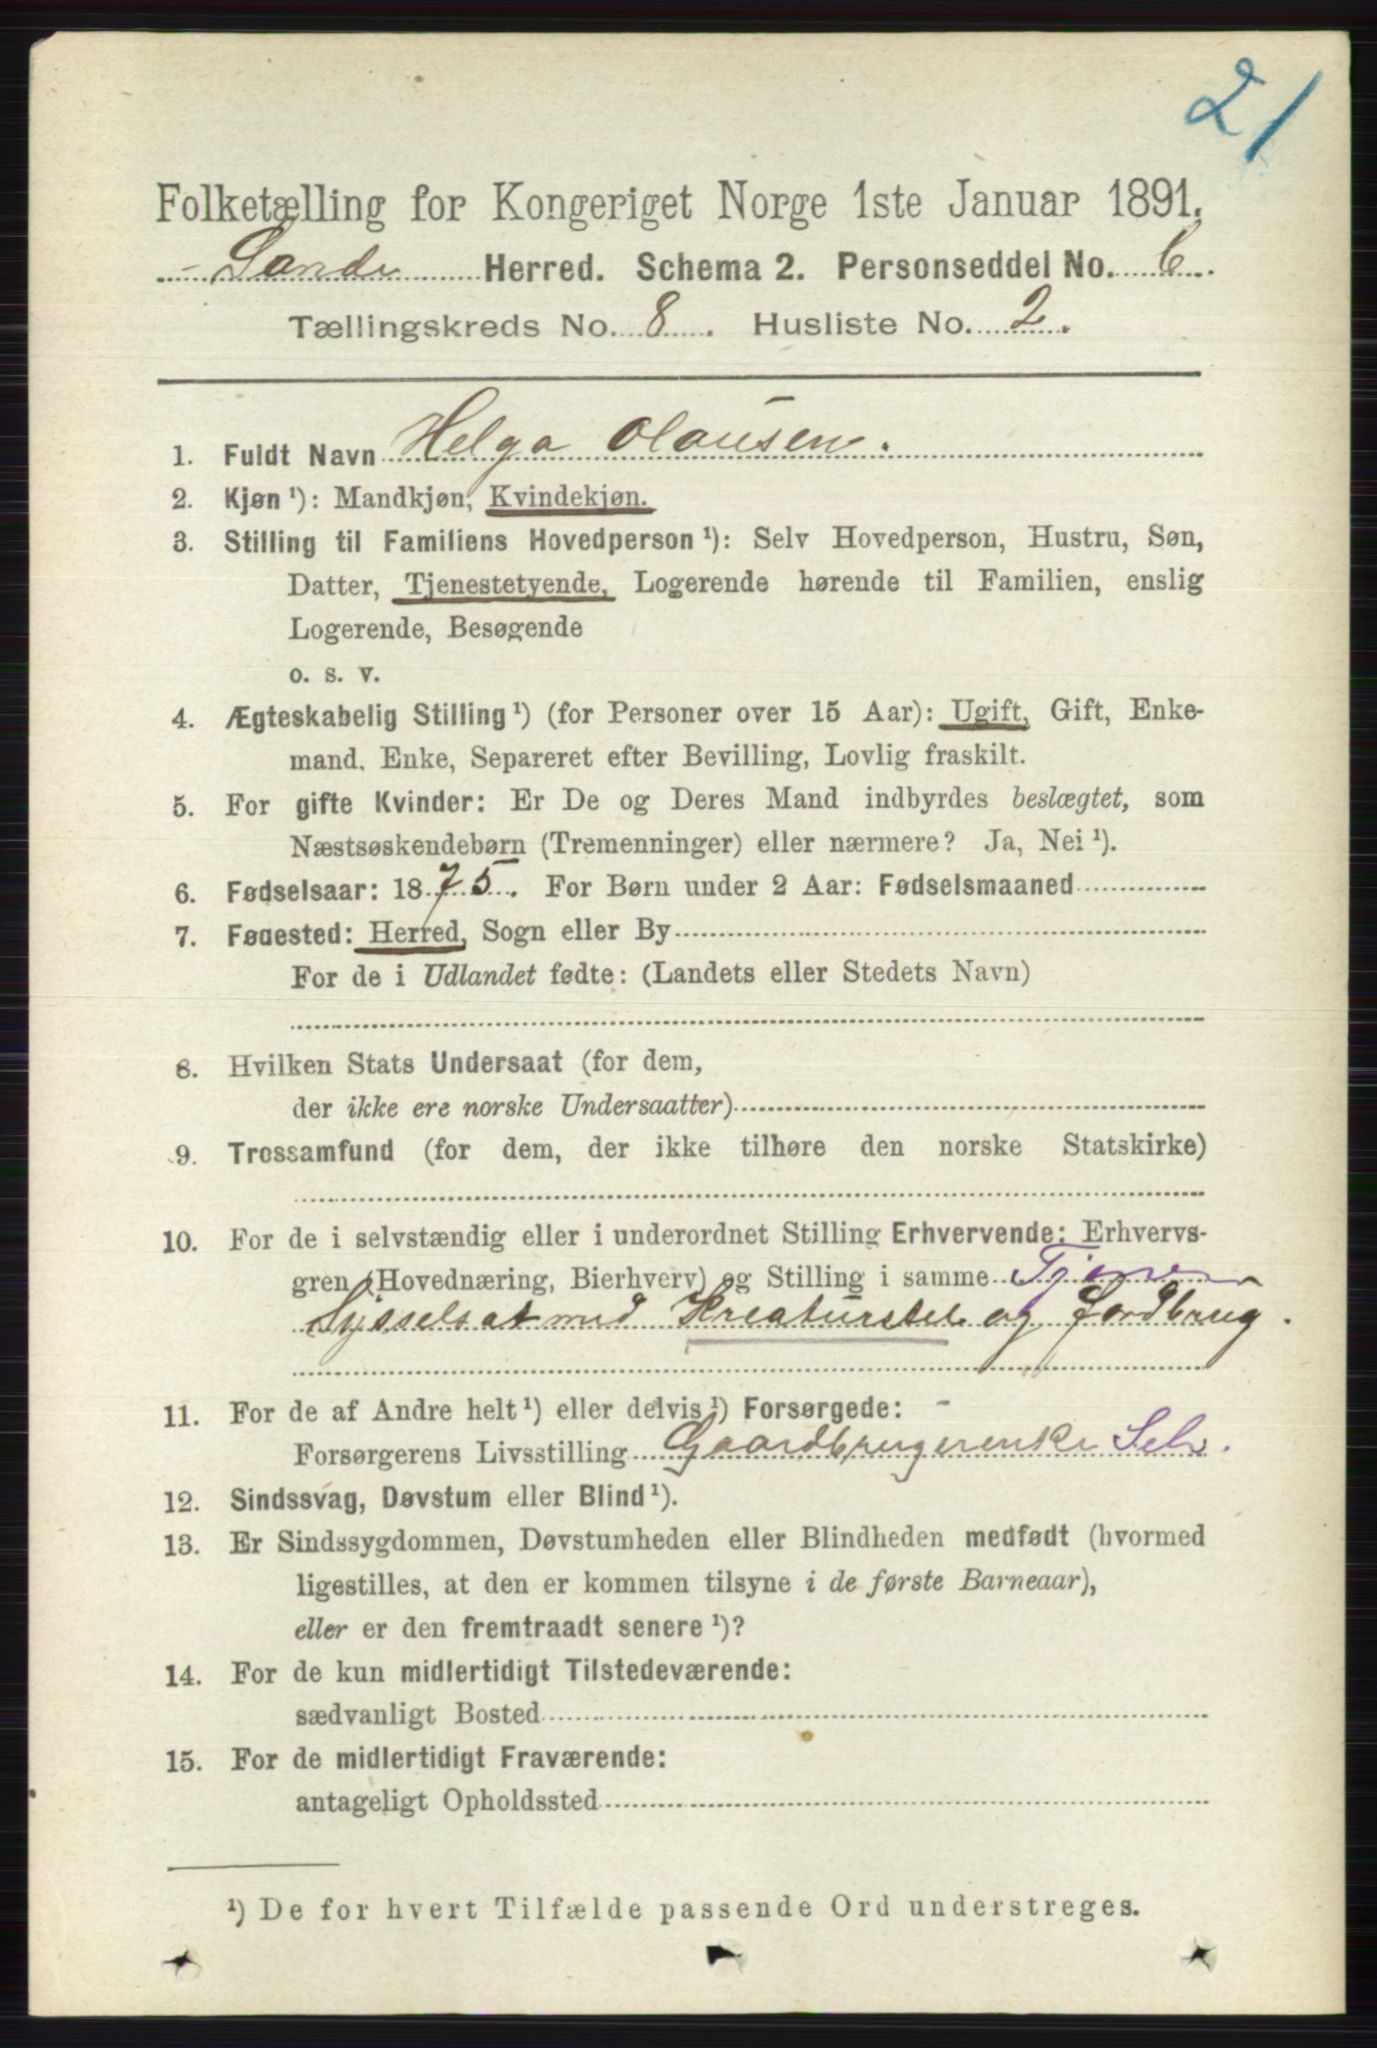 21
Folketælling for Kongeriget Norge 1ste Januar 1891.
Sande Herred. Schema 2. Personseddel No. 6.
Tællingskreds No. 8. Husliste No. 2.
1. Fuldt Navn Helga Olausen.
2. Kjøn ¹): Mandkjøn, Kvindekjøn.
3. Stilling til Familiens Hovedperson ¹): Selv Hovedperson, Hustru, Søn,
Datter, Tjenestetyende, Logerende hørende til Familien, enslig
Logerende, Besøgende
o. s. v.
4. Ægteskabelig Stilling ¹) (for Personer over 15 Aar): Ugift, Gift, Enke-
mand, Enke, Separeret efter Bevilling, Lovlig fraskilt.
5. For gifte Kvinder: Er De og Deres Mand indbyrdes beslægtet, som
Næstsøskendebørn (Tremenninger) eller nærmere? Ja, Nei ¹).
6. Fødselsaar: 1875. For Børn under 2 Aar: Fødselsmaaned
7. Fødested: Herred, Sogn eller By
For de i Udlandet fødte: (Landets eller Stedets Navn)
8. Hvilken Stats Undersaat (for dem,
der ikke ere norske Undersaatter)
9. Trossamfund (for dem, der ikke tilhøre den norske Statskirke)
10. For de i selvstændig eller i underordnet Stilling Erhvervende: Erhvervs-
gren (Hovednæring, Bierhverv) og Stilling i samme Tjener
Sysselsat med Kreaturstel og Jordbrug.
11. For de af Andre helt ¹) eller delvis ¹) Forsørgede: -
Forsørgerens Livsstilling Gaardbrugerenke Selv.
12. Sindssvag, Døvstum eller Blind ¹).
13. Er Sindssygdommen, Døvstumheden eller Blindheden medfødt (hvormed
ligestilles, at den er kommen tilsyne i de første Barneaar),
eller er den fremtraadt senere ¹)?
14. For de kun midlertidigt Tilstedeværende:
sædvanligt Bosted
15. For de midlertidigt Fraværende:
antageligt Opholdssted
¹) De for hvert Tilfælde passende Ord understreges.